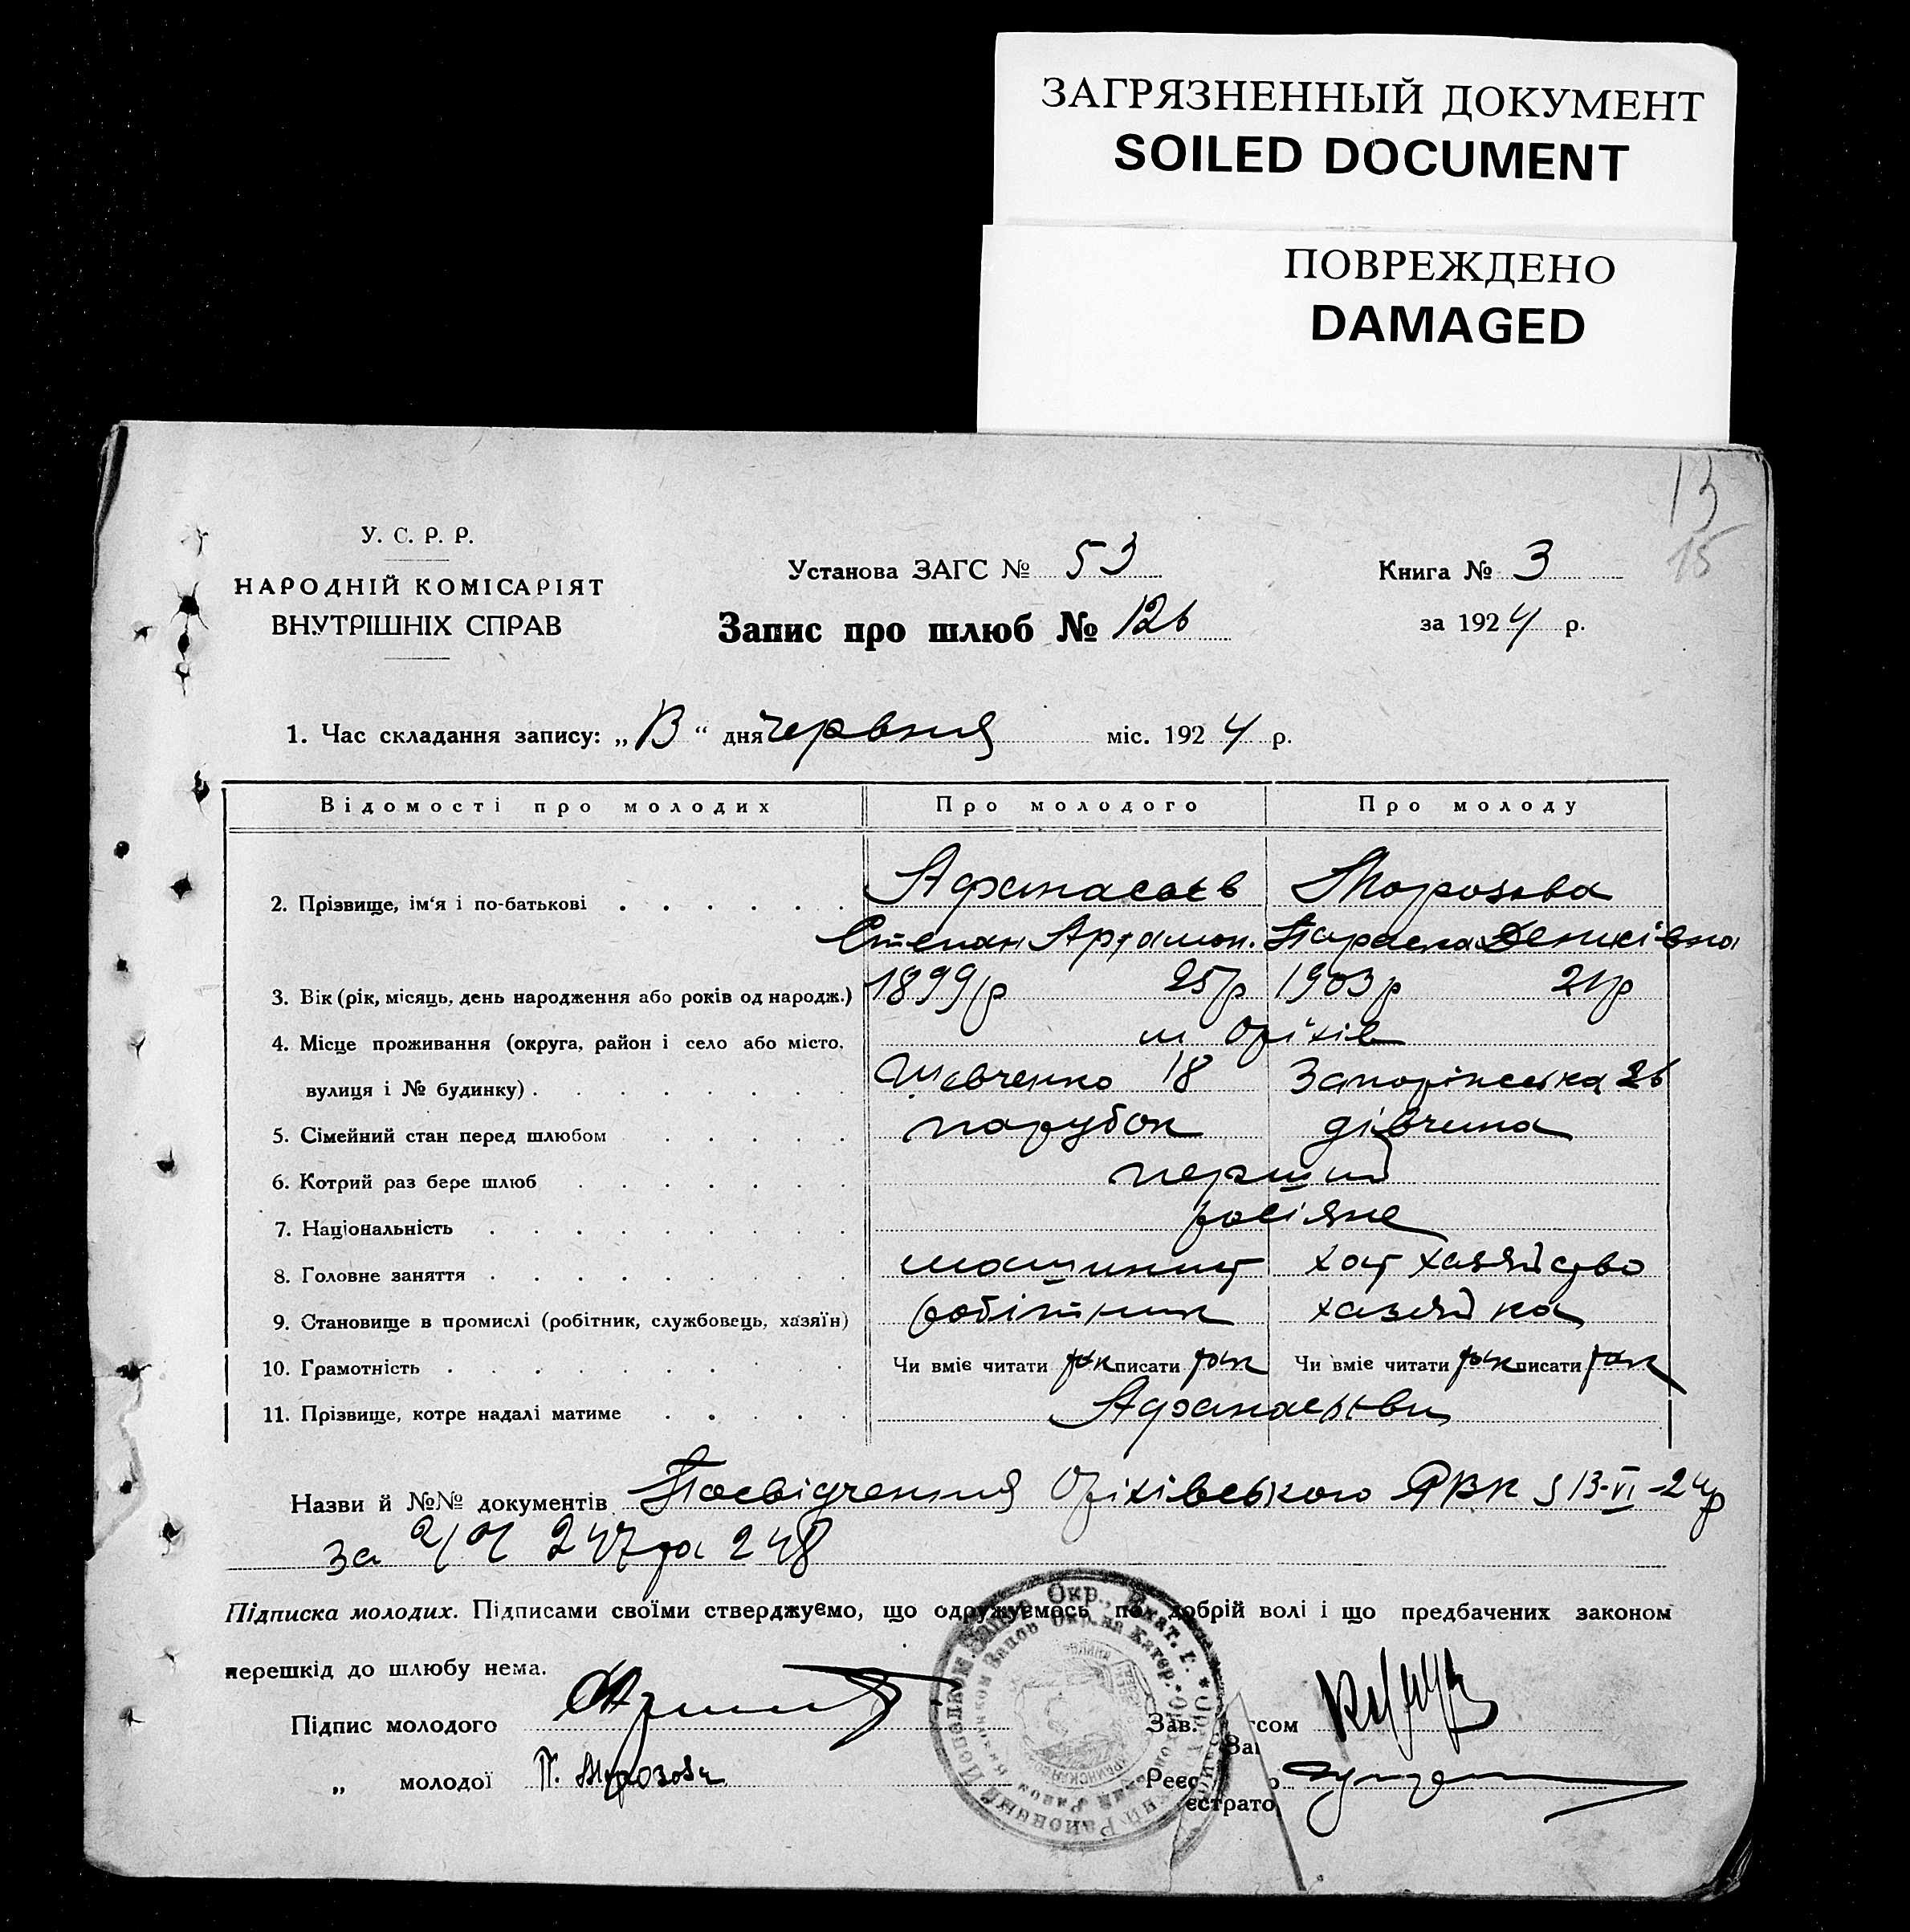 ЗАГРЯЗНЕННЫЙ ДОКУМЕНТ
SOILED DOCUMENT
ПОВРЕЖДЕНО
DAMAGED
13
15
У. С. Р. Р.
НАРОДНІЙ КОМІСАРІЯТ
ВНУТРІШНІХ СПРАВ
Установа ЗАГС № 53
Запис про шлюб № 126
Книга № 3
за 1924 р.
1. Час складання запису: „13“ дня червня міс. 1924 р.
Відомості про молодих Про молодого Про молоду
2. Прізвище, ім'я і по-батькові Афанасьєв Морозова
Степан Артамон. Параска Денисівна
3. Вік (рік, місяць, день народження або років од народж.) 1899 р 25 р 1903 р 21 р
4. Місце проживання (округа, район і село або місто, м Оріхів
вулиця і № будинку) Шевченко 18 Запоріжська 26
5. Сімейний стан перед шлюбом парубок дівчина
6. Котрий раз бере шлюб перший
7. Національність росіяне
8. Головне заняття машиніст хат хазяйство
9. Становище в промислі (робітник, службовець, хазяїн) робітник хазяйка
10. Грамотність Чи вміє читати так писати так Чи вміє читати так писати так
11. Прізвище, котре надалі матиме Афанасьєви
Назви й №№ документів Посвідчення Оріхівського РВК з 13-VI-24р
за 247 та 248
Підписка молодих. Підписами своїми стверджуємо, що одружуємось по добрій волі і що предбачених законом
перешкід до шлюбу нема.
Підпис молодого
Зав. гсом
„ молодої П. Морозова